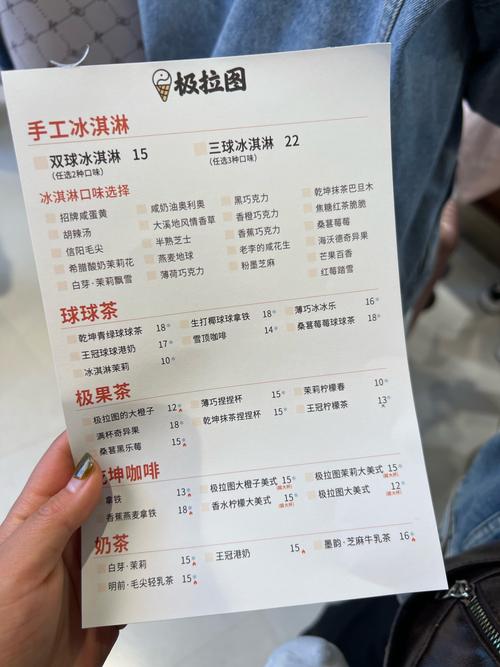 极拉图
手工冰淇淋
双球冰淇淋 15 三球冰淇淋 22
(任选2种口味) (任选3种口味)
冰淇淋口味选择
招牌咸蛋黄 咸奶油奥利奥 黑巧克力 乾坤抹茶巴旦木
胡辣汤 大溪地风情香草 香橙巧克力 焦糖红茶脆脆
信阳毛尖 半熟芝士 香蕉巧克力 桑葚莓莓
希腊酸奶茉莉花 燕麦地球 老李的咸花生 海沃德奇异果
白芽·茉莉飘雪 薄荷巧克力 粉墨芝麻 芒果百香
红莓踏雪
球球茶
乾坤青绿球球茶 18 生打椰球球拿铁 18 薄巧冰冰乐 16
王冠球球港奶 17 雪顶咖啡 14 桑葚莓莓球球茶 18
冰淇淋茉莉 10
极果茶
极拉图的大橙子 12 薄巧捏捏杯 15 茉莉柠檬春 10
满杯奇异果 18 乾坤抹茶捏捏杯 15 王冠柠檬茶 13
桑葚黑乐莓 15
坤咖啡
拿铁 13 极拉图大橙子美式 15 极拉图茉莉大美式 15
香蕉燕麦拿铁 18 香水柠檬大美式 15 极拉图大美式 12
奶茶
白芽·茉莉 15 王冠港奶 15 墨韵·芝麻牛乳茶 16
明前·毛尖轻乳茶 15